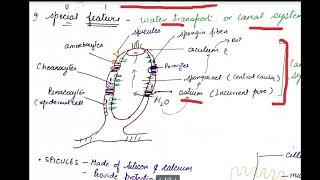 9. special feature - water transport or canal system
spicules
spongin fibers
amoebocytes
osculum
out
Choanocytes
Porocytes
spongocoel (central cavity)
Pinacocytes
(epidermal cell)
ostium (incurrent pore)
H₂O
• SPICULES - Made of Silicon & calcium
Provide protection